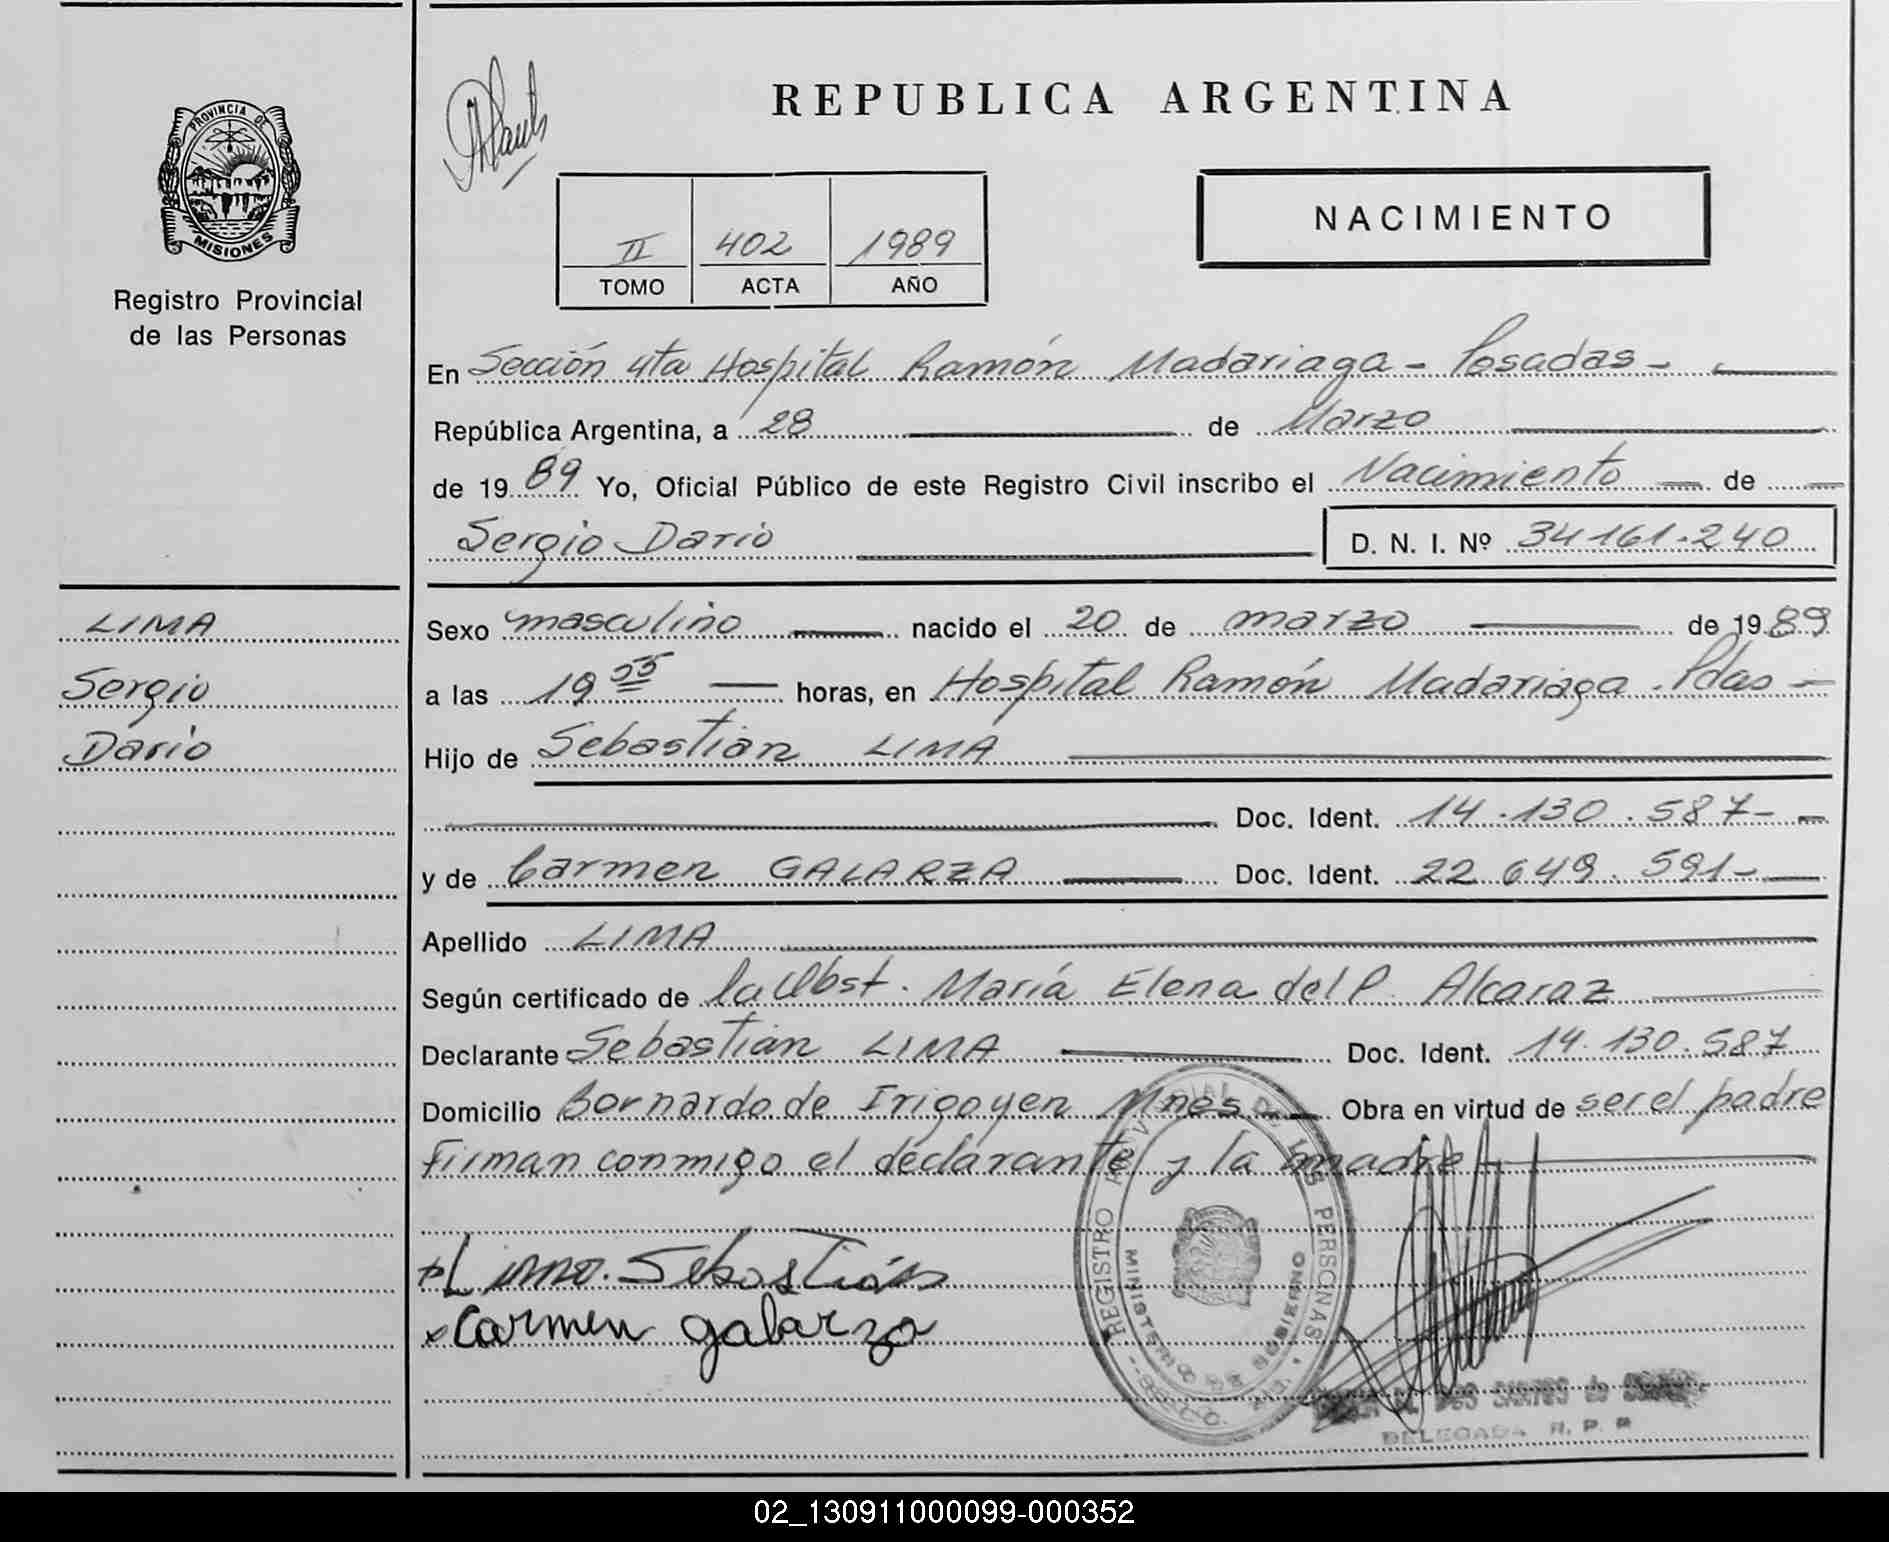 PROVINCIA DE
MISIONES
Registro Provincial
de las Personas
LIMA
Sergio
Dario
REPUBLICA ARGENTINA
II 402 1989
TOMO ACTA AÑO
NACIMIENTO
En Sección 4ta Hospital Ramón Madariaga - Posadas -
República Argentina, a 28 de Marzo
de 1989 Yo, Oficial Público de este Registro Civil inscribo el Nacimiento de
Sergio Dario D. N. I. Nº 34161.240
Sexo masculino nacido el 20 de marzo de 1989
a las 19 55 horas, en Hospital Ramón Madariaga. Pdas -
Hijo de Sebastian LIMA
Doc. Ident. 14.130.587-
y de Carmen GALARZA Doc. Ident. 22 649.591-
Apellido LIMA
Según certificado de la Obst. María Elena del P. Alcaraz
Declarante Sebastian LIMA Doc. Ident. 14.130.587
Domicilio Bernardo de Irigoyen Mnes - Obra en virtud de ser el padre
Firman conmigo el declarante y la madre
Lima. Sebastián
x Carmen galarza
REGISTRO PROVINCIAL DE LAS PERSONAS
MINISTERIO DE GOBIERNO
DOS SANTOS de
DELEGADA R. P. P.
02_130911000099-000352